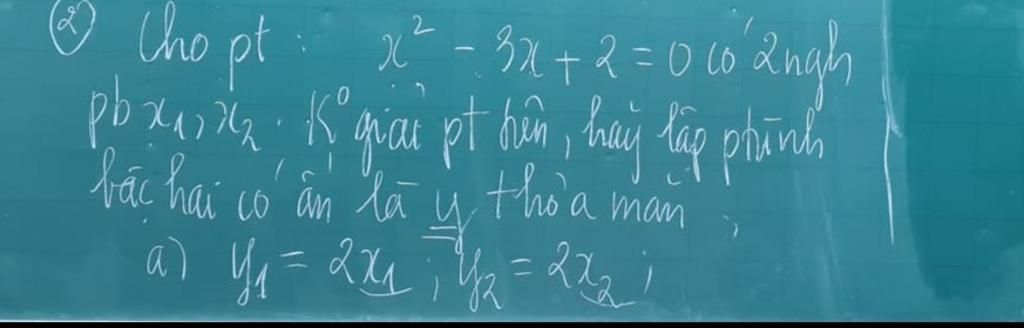 ② Cho pt : x² - 3x + 2 = 0 có 2 ngh
pb x₁, x₂. K⁰ giải pt trên, hãy lập phtrình
bậc hai có ẩn là y thỏa mãn
a) y₁ = 2x₁ ; y₂ = 2x₂ ;